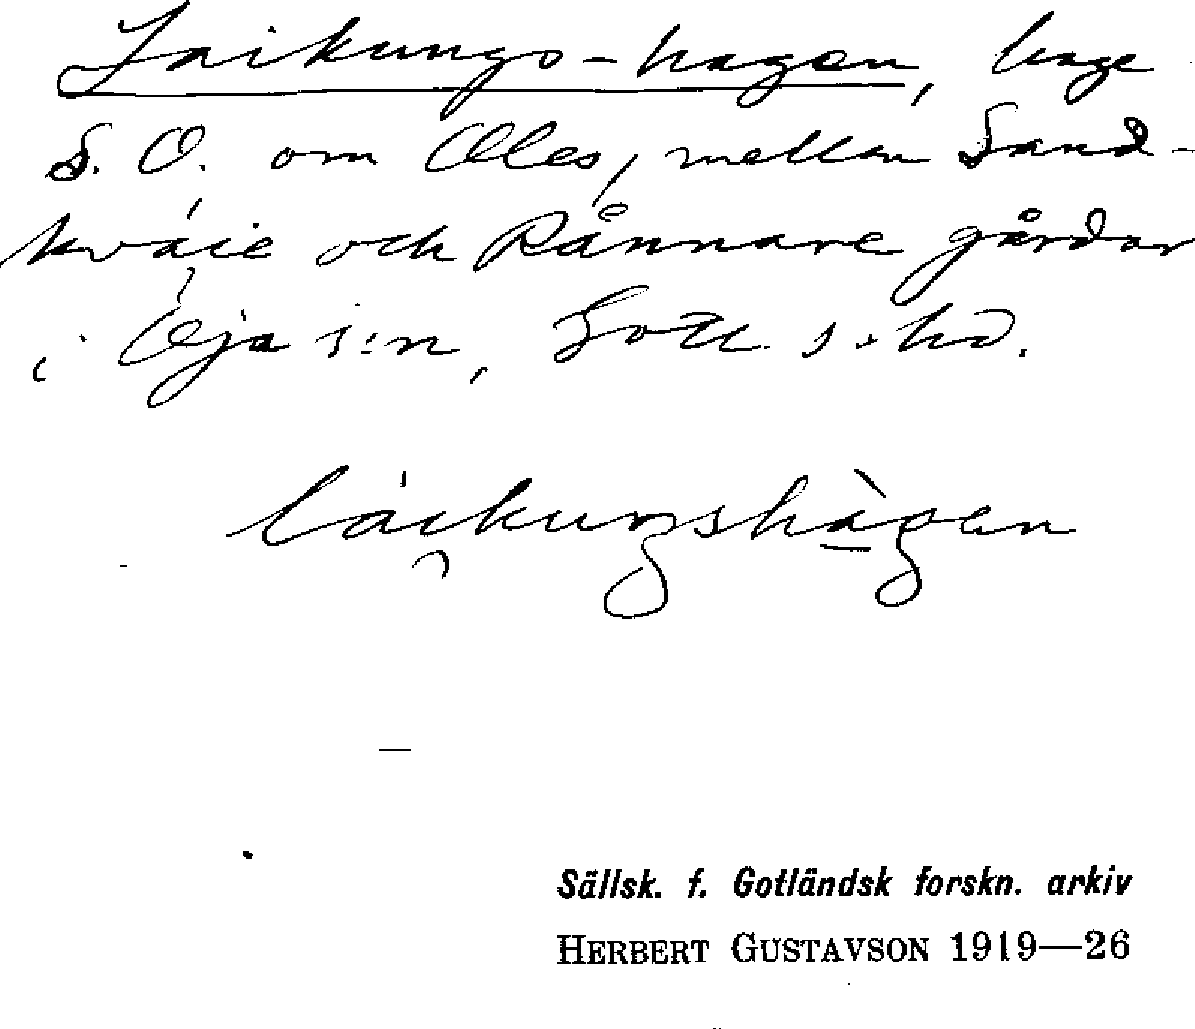 Laikungs-hagen, hage
S. O. om Oles, mellan Sand-
kväie och Rånnare gårdar
i Öja s:n, Gotl. s. hd.
láikungshàgen
Sällsk. f. Gotländsk forskn. arkiv
HERBERT GUSTAVSON 1919—26